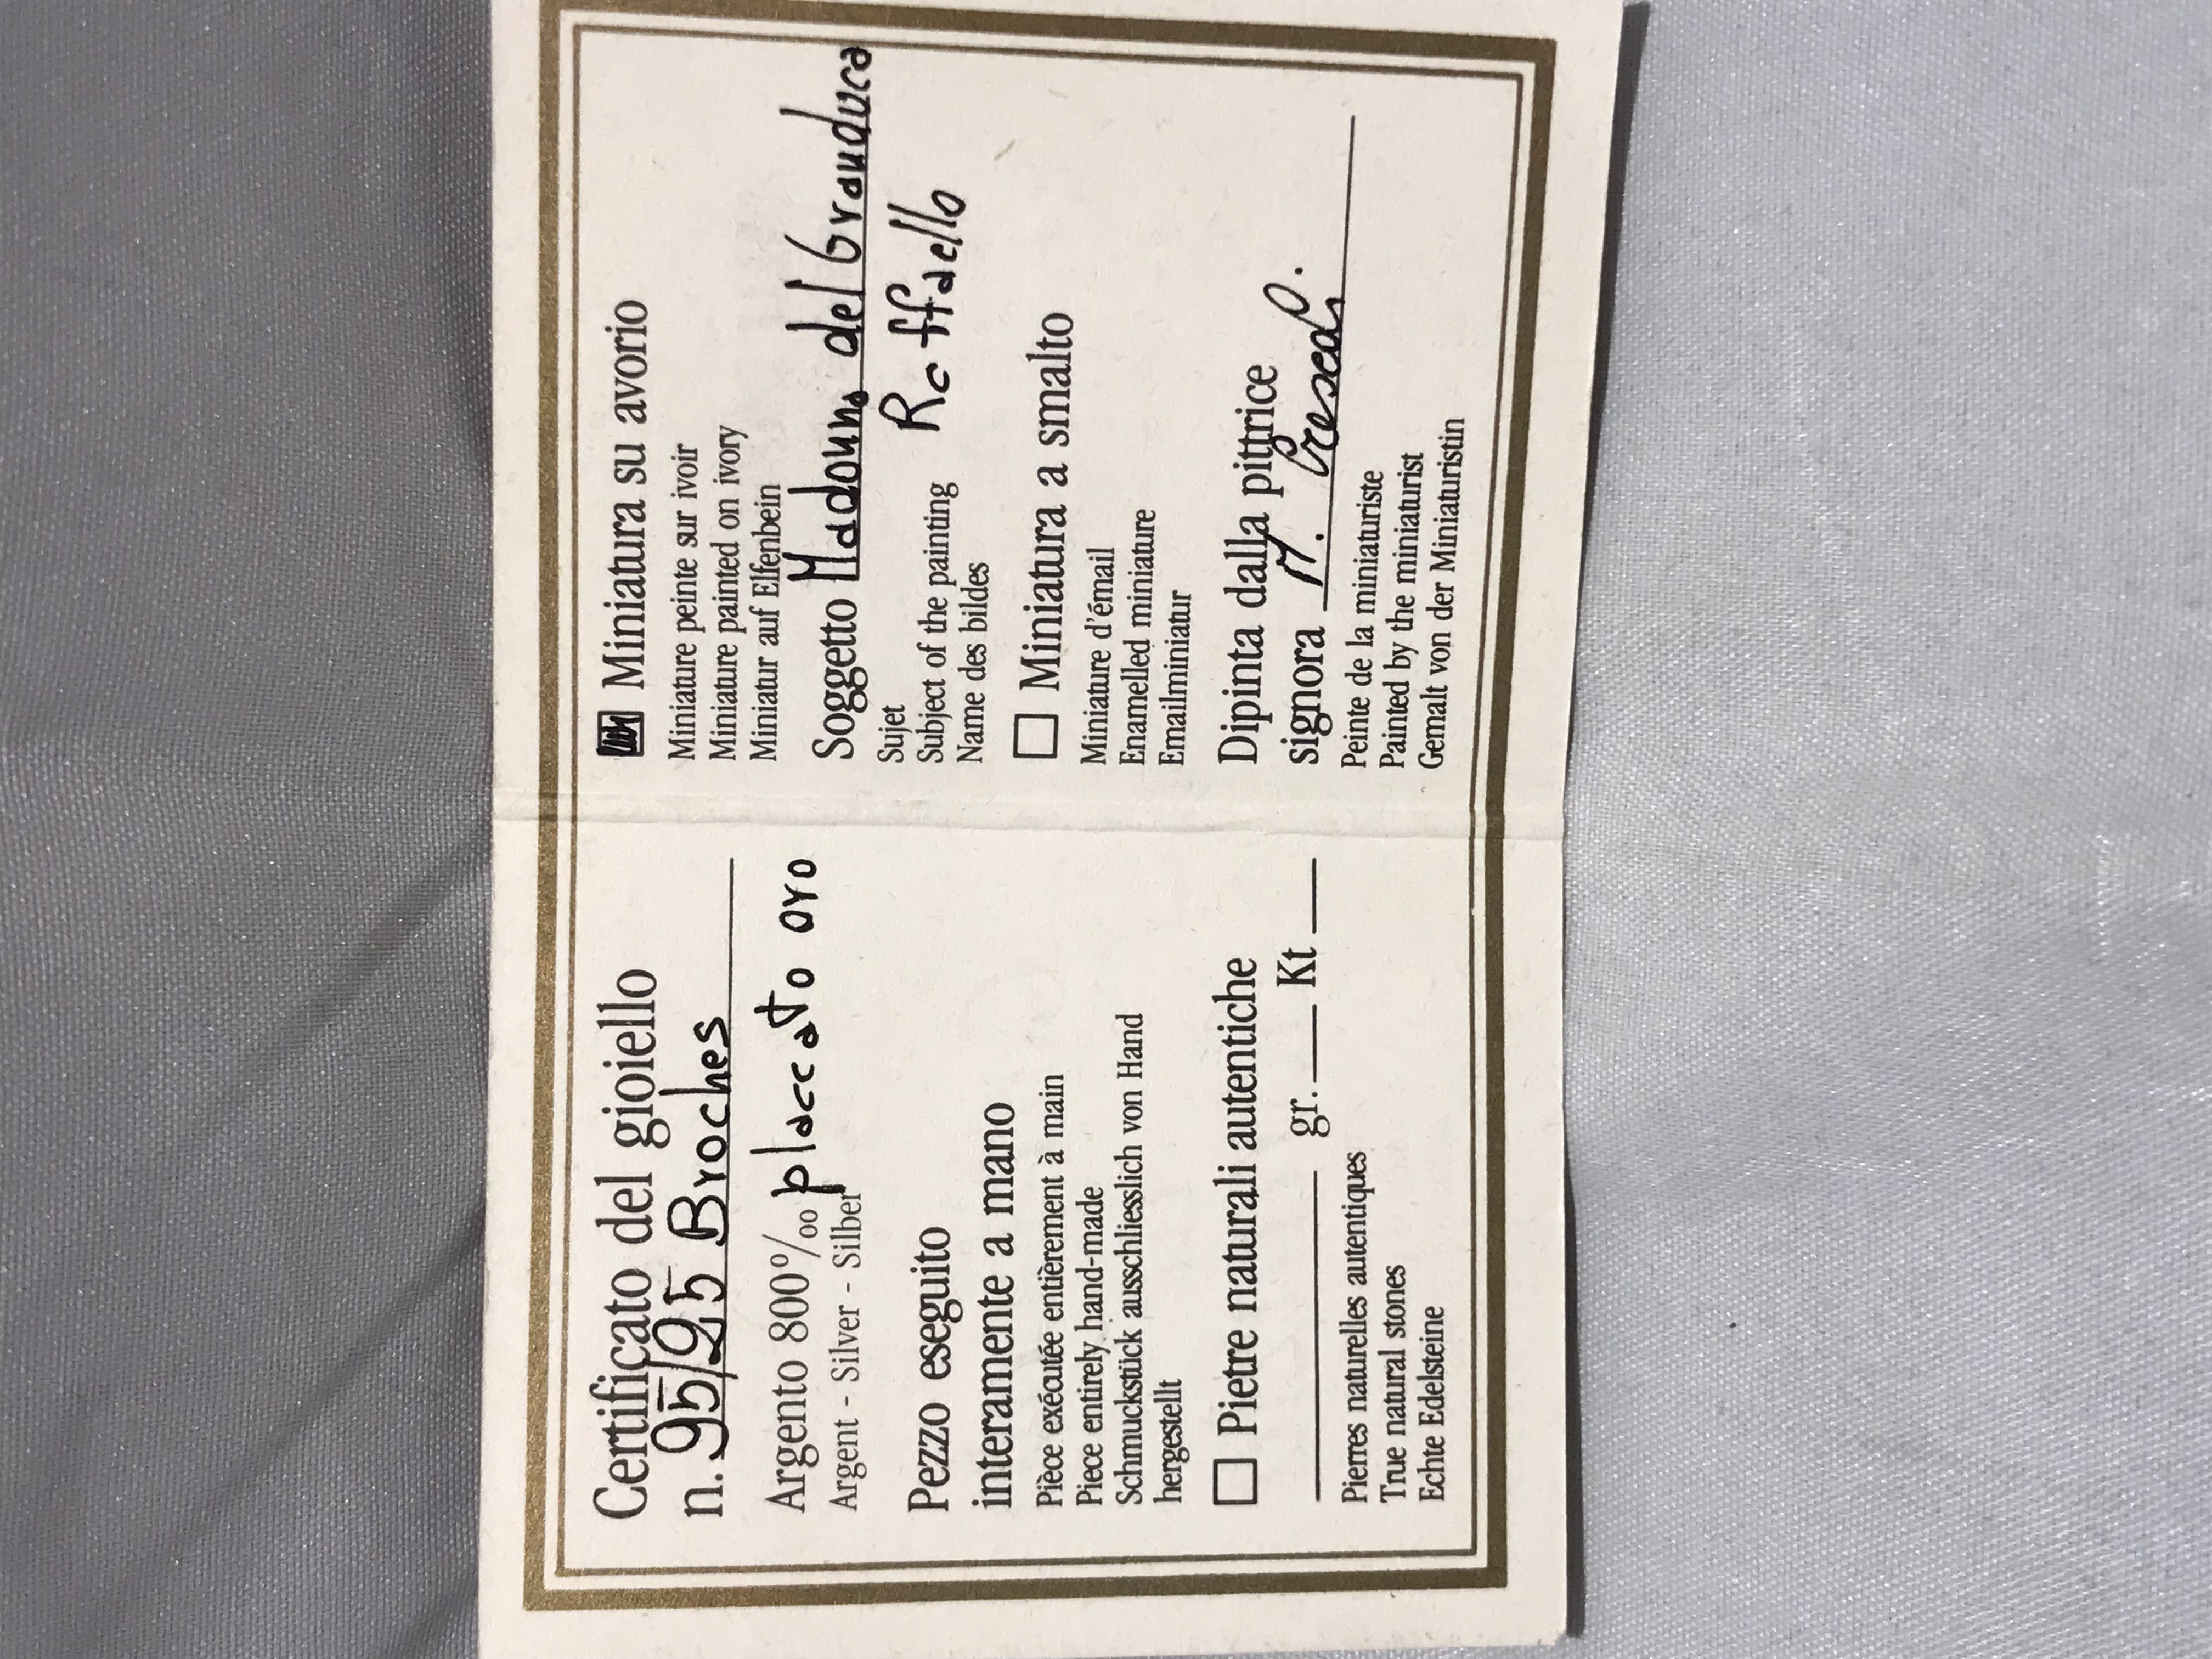 Certificato del gioiello
n. 95/95 Broches
Argento 800°/oo placcato oro
Argent - Silver - Silber
Pezzo eseguito
interamente a mano
Pièce exécutée entièrement à main
Piece entirely hand-made
Schmuckstück ausschliesslich von Hand
hergestellt
Pietre naturali autentiche
gr. Kt
Pierres naturelles autentiques
True natural stones
Echte Edelsteine
Miniatura su avorio
Miniature peinte sur ivoir
Miniature painted on ivory
Miniatur auf Elfenbein
Soggetto Madonna del Granduca
Sujet
Raffaello
Subject of the painting
Name des bildes
Miniatura a smalto
Miniature d'émail
Enamelled miniature
Emailminiatur
Dipinta dalla pittrice
signora M.
Peinte de la miniaturiste
Painted by the miniaturist
Gemalt von der Miniaturistin